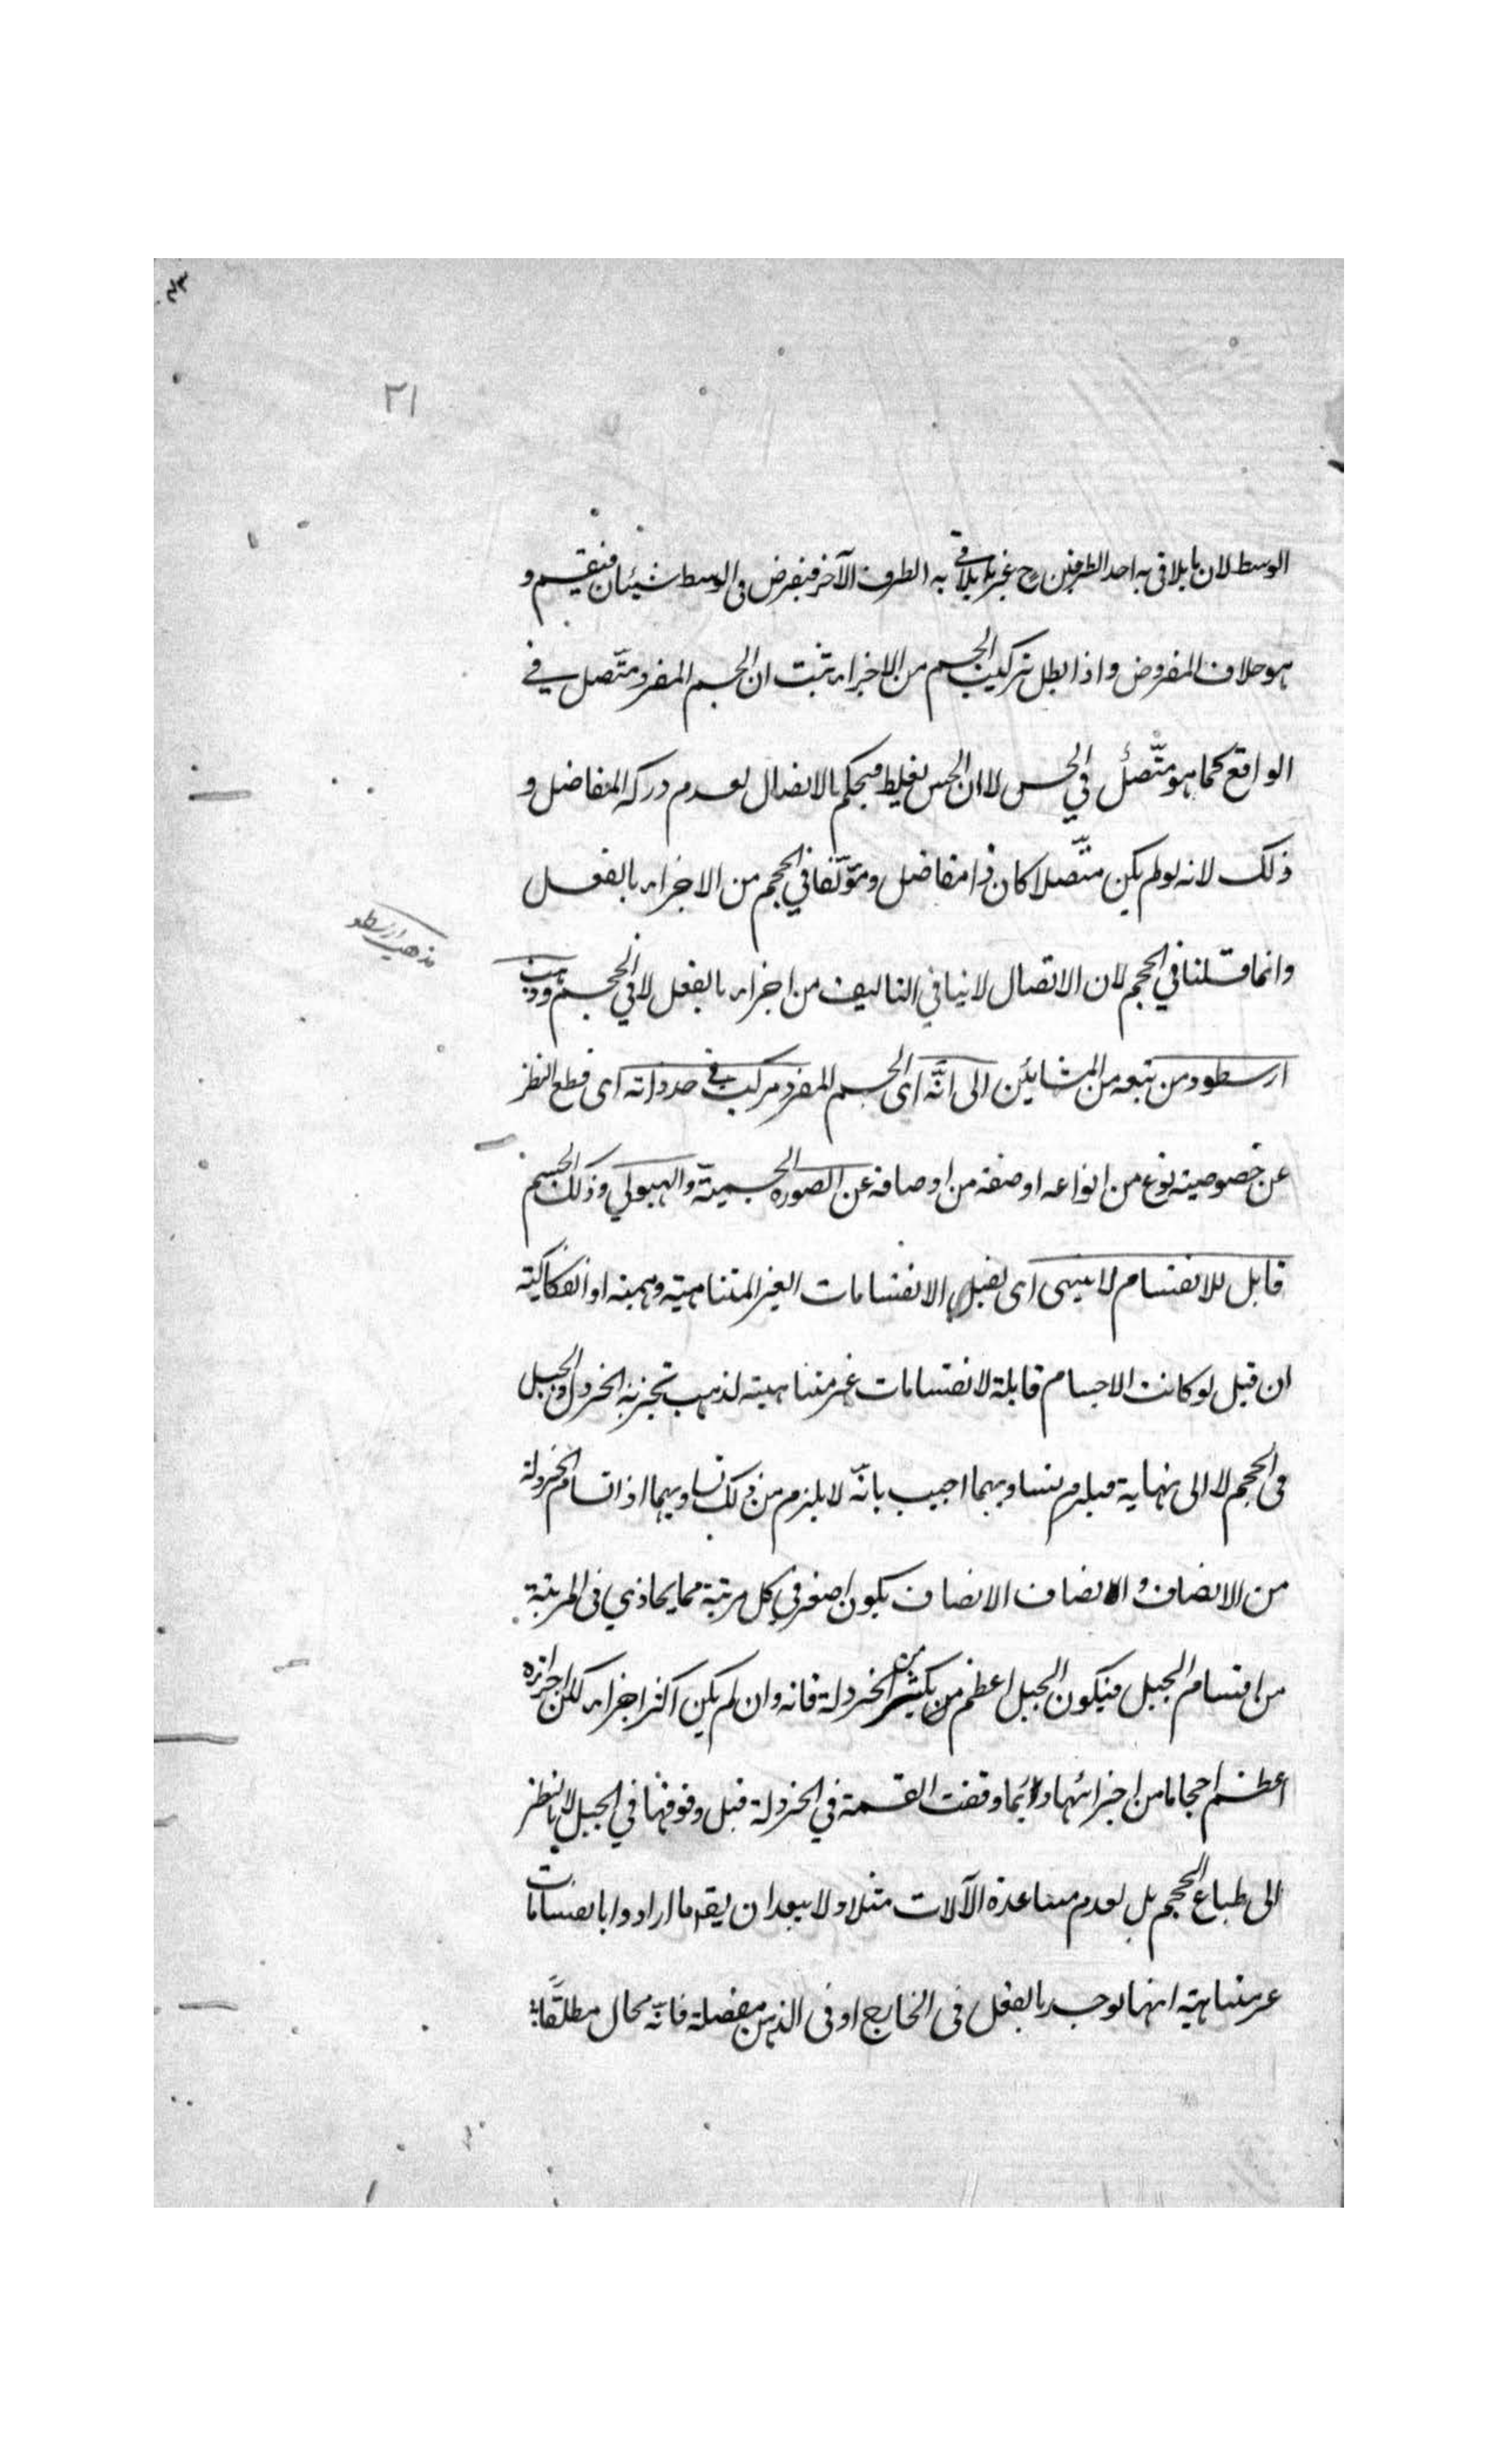 ٢١
الوسط لان ما يلاقى به احد الطرفين ح غير ما يلاقى به الطرف الآخر فيفرض فى الوسط شيئان فينقسم و
هو خلاف المفروض واذا بطل تركيب الجسم من الاجزاء ثبت ان الجسم المفرد متّصل في
الواقع كما هو متّصل في الحس لا ان الحس يغلط فيحكم بالاتصال لعدم دركه المفاصل و
ذلك لانه لو لم يكن متّصلا كان ذا مفاصل ومؤلّفا في الحجم من الاجزاء بالفعل
وانما قلنا في الحجم لان الاتصال لا ينافي التاليف من اجزاء بالفعل لا في الحجم وذهب
مذهب ارسطو
ارسطو ومن تبعه من المشايئن الى انّه اى الجسم المفرد مركب في حد ذاته اى قطع النظر
عن خصوصية نوع من انواعه او صفة من اوصافه عن الصوره الجسميّة والهيولي وذلك الجسم
قابل للانقسام لا ينتهى اى يقبل الانقسامات الغير المتناهية وهمية او انفكاكية
ان قيل لو كانت الاجسام قابلة لانقسامات غير متناهية لذهب تجزية الخردل والجبل
فى الحجم لا الى نهاية فيلزم تساويهما اجيب بانّه لا يلزم من ذلك تساويهما اذ اقسام الخردلة
من الانصاف و انصاف الانصاف يكون اصغر في كل مرتبة مما يحاذي فى المرتبة
من اقسام الجبل فيكون الجبل اعظم بكثير من الخردلة فانه وان لم يكن اكثر اجزاء لكن اجزاءه
اعظم احجاما من اجزائها وانما وقفت القسمة في الخردلة قبل وقوفها في الجبل لا بالنظر
الى طباع الحجم بل لعدم مساعدة الآلات مثلا ولا يبعد ان يقم ما ارادوا بانقسامات
غير متناهية انها توجد بالفعل فى الخارج او فى الذهن مفصلة فانّه محال مطلقًا